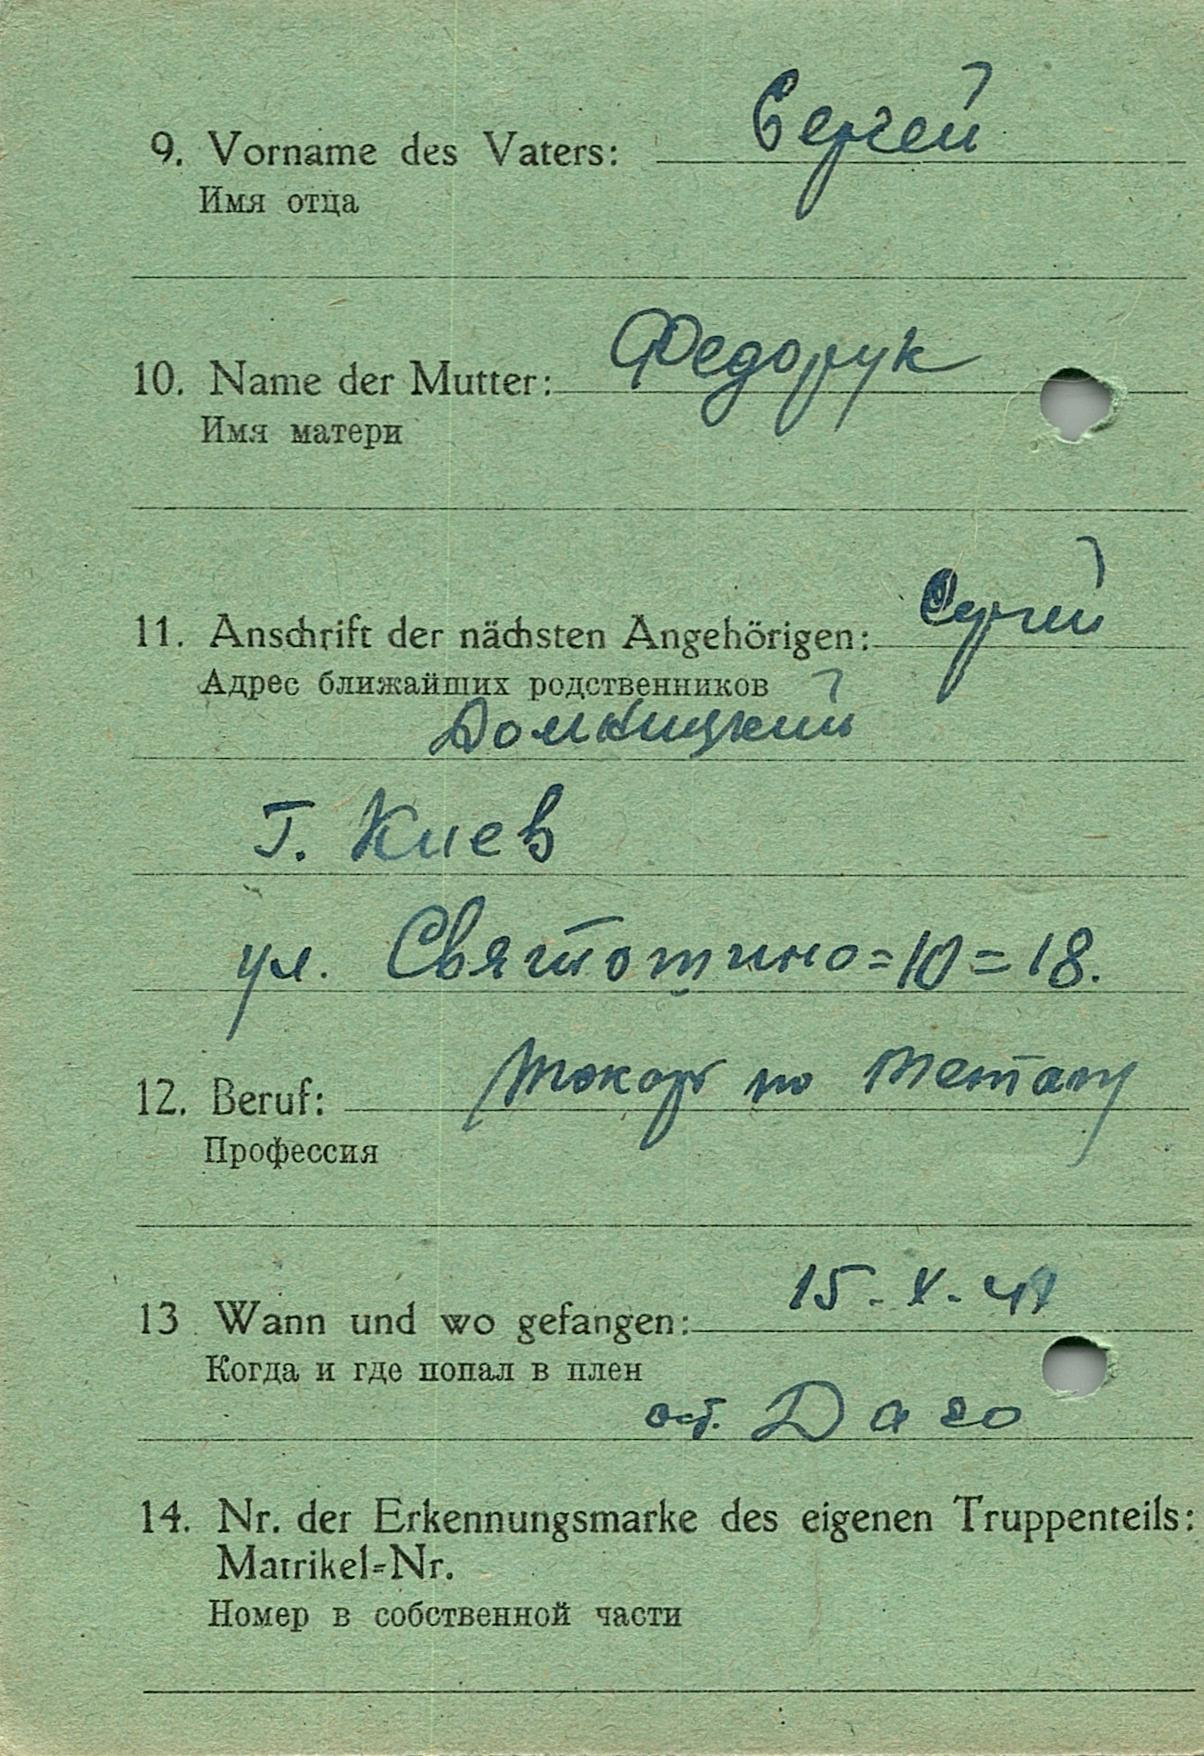 Сергей
9. Vorname des Vaters:
Имя отца
Федорук
10. Name der Mutter:
Имя матери
Сергей
11. Anschrift der nächsten Angehörigen:
Адрес ближайших родственников
Домницкий
Г. Киев
ул. Святошино=10=18.
12. Beruf: Токарь по металу
Профессия
15-X-41
13 Wann und wo gefangen:
Когда и где попал в плен
ост. Даго
14. Nr. der Erkennungsmarke des eigenen Truppenteils:
Matrikel=Nr.
Номер в собственной части